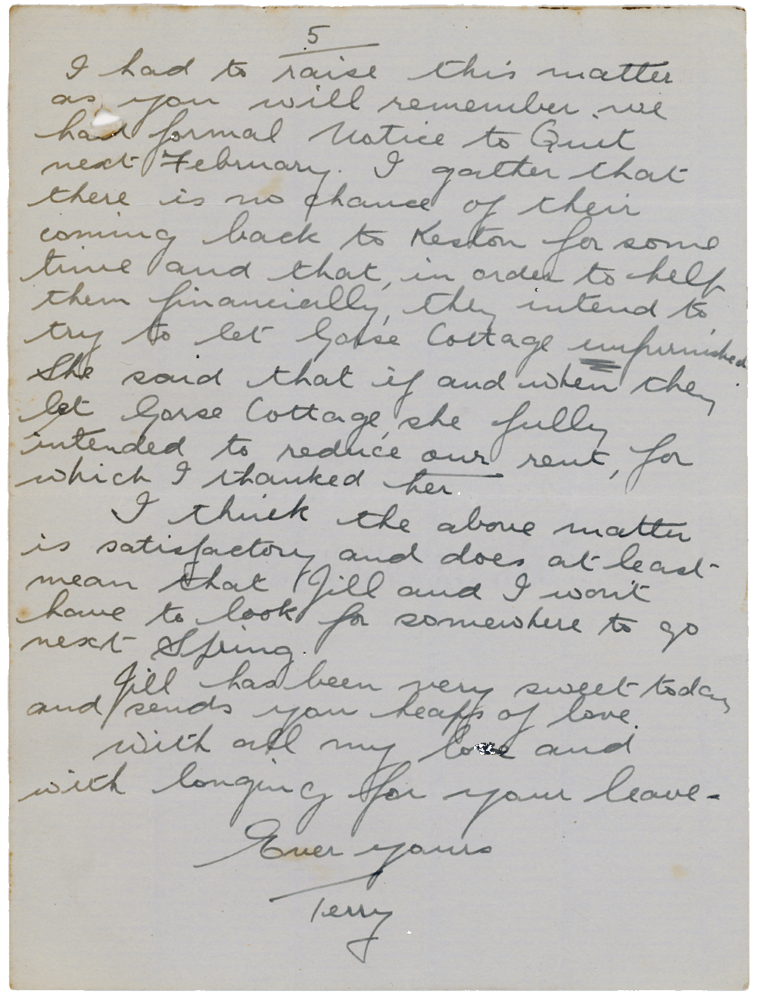 5
I had to raise this matter
as you will remember we
had formal Notice to Quit
next February. I gather that
there is no chance of their
coming back to Keston for some
time and that, in order to help
them financially, they intend to
try to let Gorse Cottage unfurnished.
She said that if and when they
let Gorse Cottage, she fully
intended to reduce our rent, for
which I thanked her
I think the above matter
is satisfactory and does at least
mean that Jill and I won't
have to look for somewhere to go
next Spring.
Jill has been very sweet today
and sends you heaps of love.
with all my love and
with longing for your leave -
Ever yours
Terry